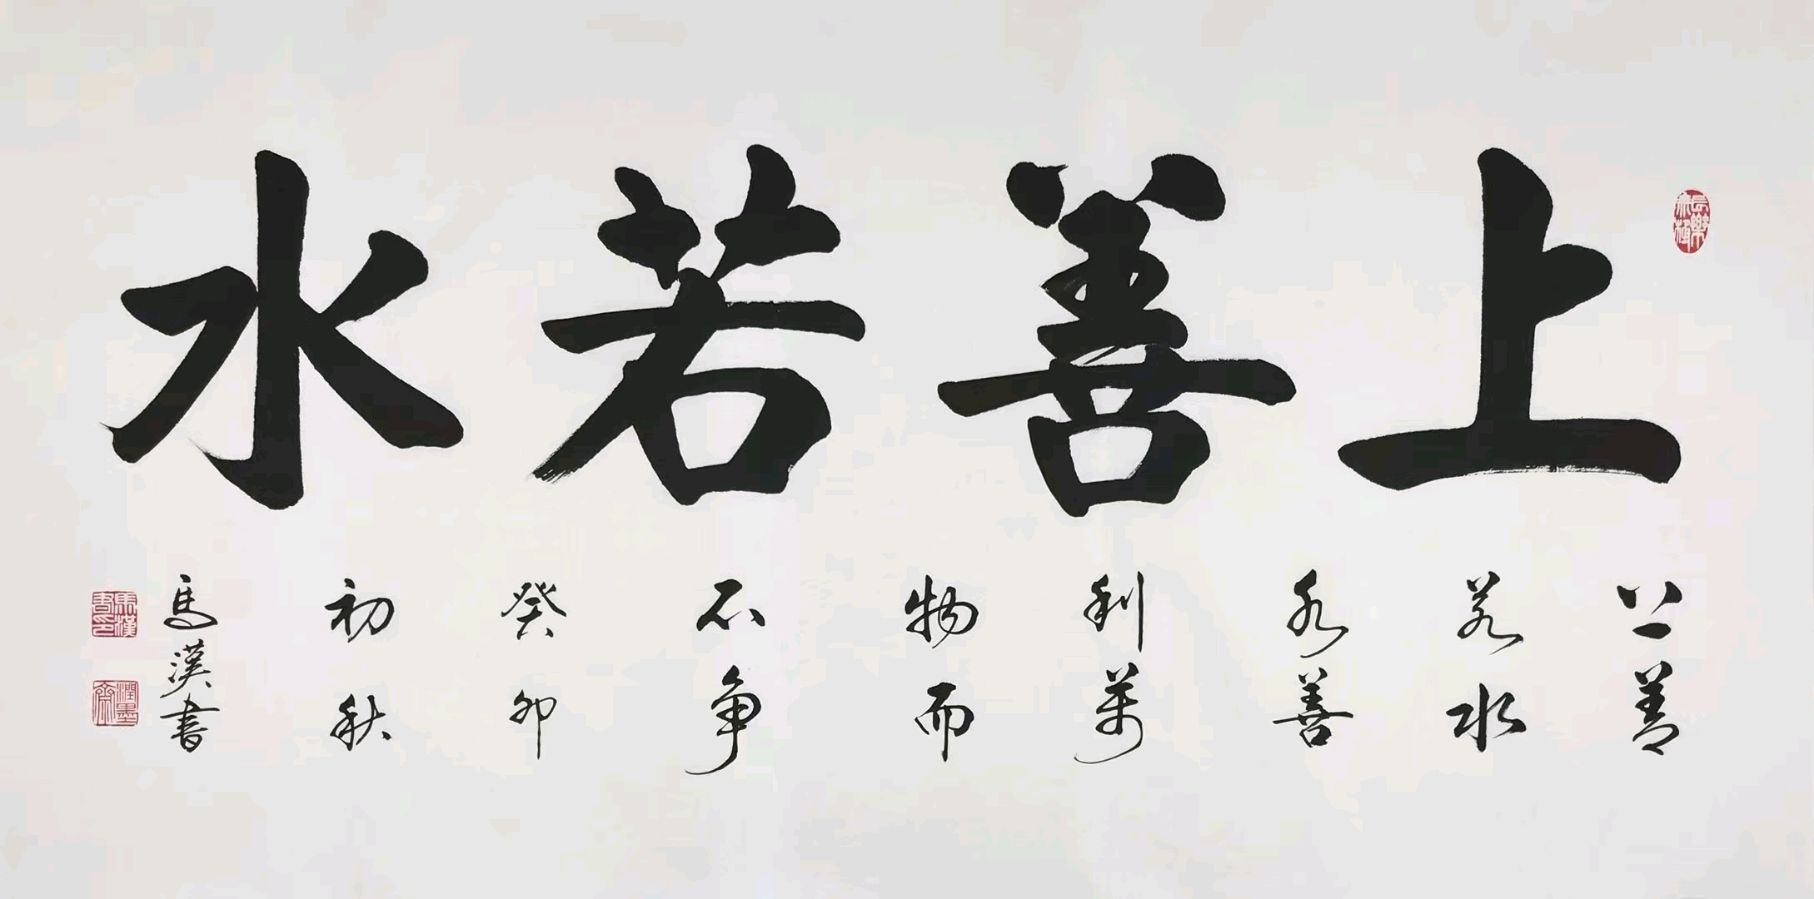 上善若水
上善
若水
水善
利萬
物而
不争
癸卯
初秋
馬漢書